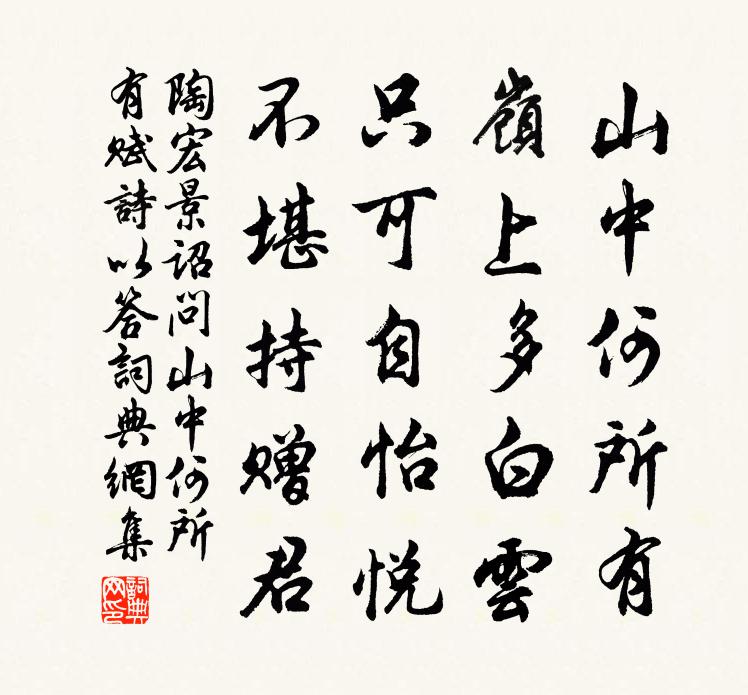 山中何所有
嶺上多白雲
只可自怡悅
不堪持贈君
陶宏景詔問山中何所
有賦詩以答詞典網集
詞典
网印